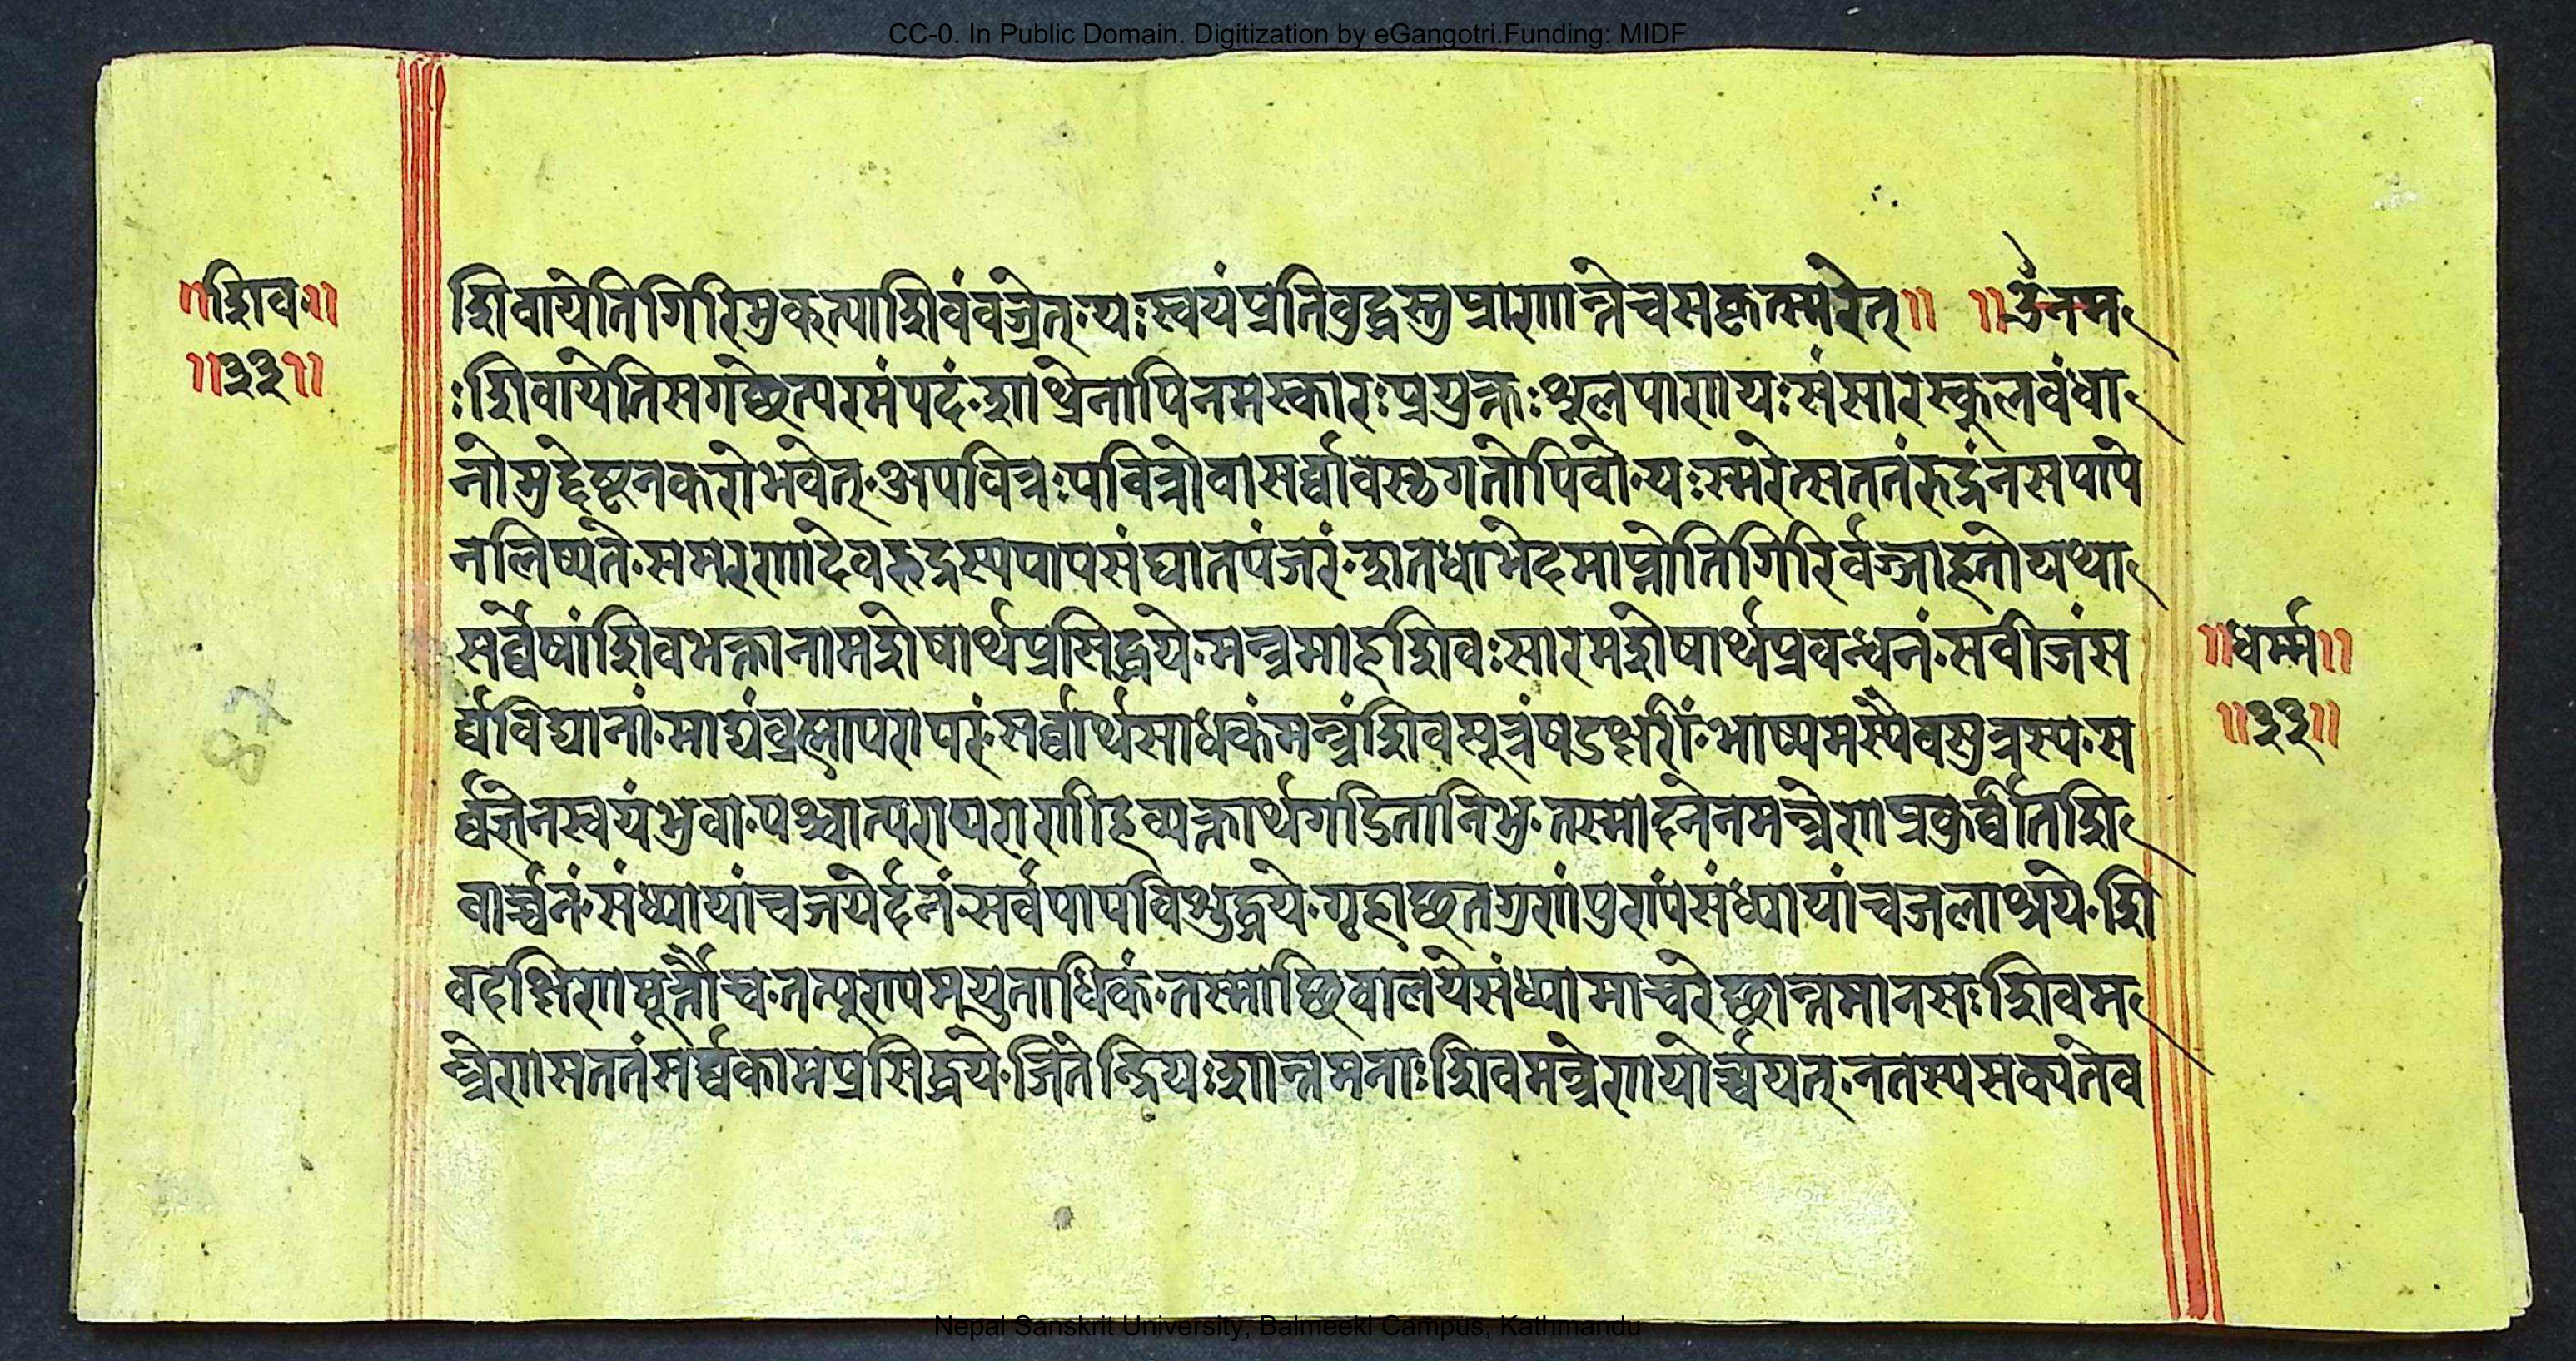 CC-0. In Public Domain. Digitization by eGangotri.Funding: MIDF
॥शिव॥
॥३३॥
शिवायेतिगिरिमुकत्पाशिवंवज्रेत्॰यःस्वयंप्रतिवुद्धस्तुप्राणान्तेचसकृत्स्मरेत्॥ ॥ॐनम
ःशिवायेतिसगछेत्परमंपदं॰शाथ्रेनापिनमस्कारःप्रयुक्तःशूलपाणयःसंसारस्कूलवंधा
नोमुद्देष्टनकरोभवेत्॰अपवित्रःपवित्रोवासर्व्वावस्थगतोपिवा॰यःस्मरेत्सततंरुद्रंनसपापे
नलिप्यते॰समरणादेवरुद्रस्यपापसंघातपंजरं॰शतधाभेदमाप्नोतिगिरिर्वज्राहतोयथा
सर्व्वेषांशिवभक्तानामशेषार्थप्रसिद्धये॰मन्त्रमाहशिवःसारमशेषार्थप्रवन्धनं॰सवीजंस
र्व्वविद्यानां॰माद्यंव्रह्मापरापरं॰सर्व्वार्थसाधकंमन्त्रंशिवसूत्रंषडक्षरीं॰भाष्यमस्यैवसुत्रस्य॰स
र्व्वज्ञेनस्वयंभुवा॰पश्चात्परापराणीहव्यक्तार्थगडितानिभु॰तस्मादनेनमन्त्रेणप्रकुर्व्वीतशि
वार्च्चनं॰संध्यायांचजयेर्दनंसर्वपापविशुद्धये॰गृहाछतगुणंपुण्यंसंध्यायांचजलाश्रये॰शि
वदक्षिणमूर्त्तौच॰तत्पुण्यमयुताधिकं॰तस्माछिवालयेसंध्यामाचरेछान्तमानसःशिवम
न्त्रेणसततंसर्व्वकामप्रसिद्धये॰जितेन्द्रियःशान्तमनाःशिवमन्त्रेणयोर्च्चयत्॰नतस्यसक्यतेव
॥धर्म्म॥
॥३३॥
87
Nepal Sanskrit University, Balmeeki Campus, Kathmandu